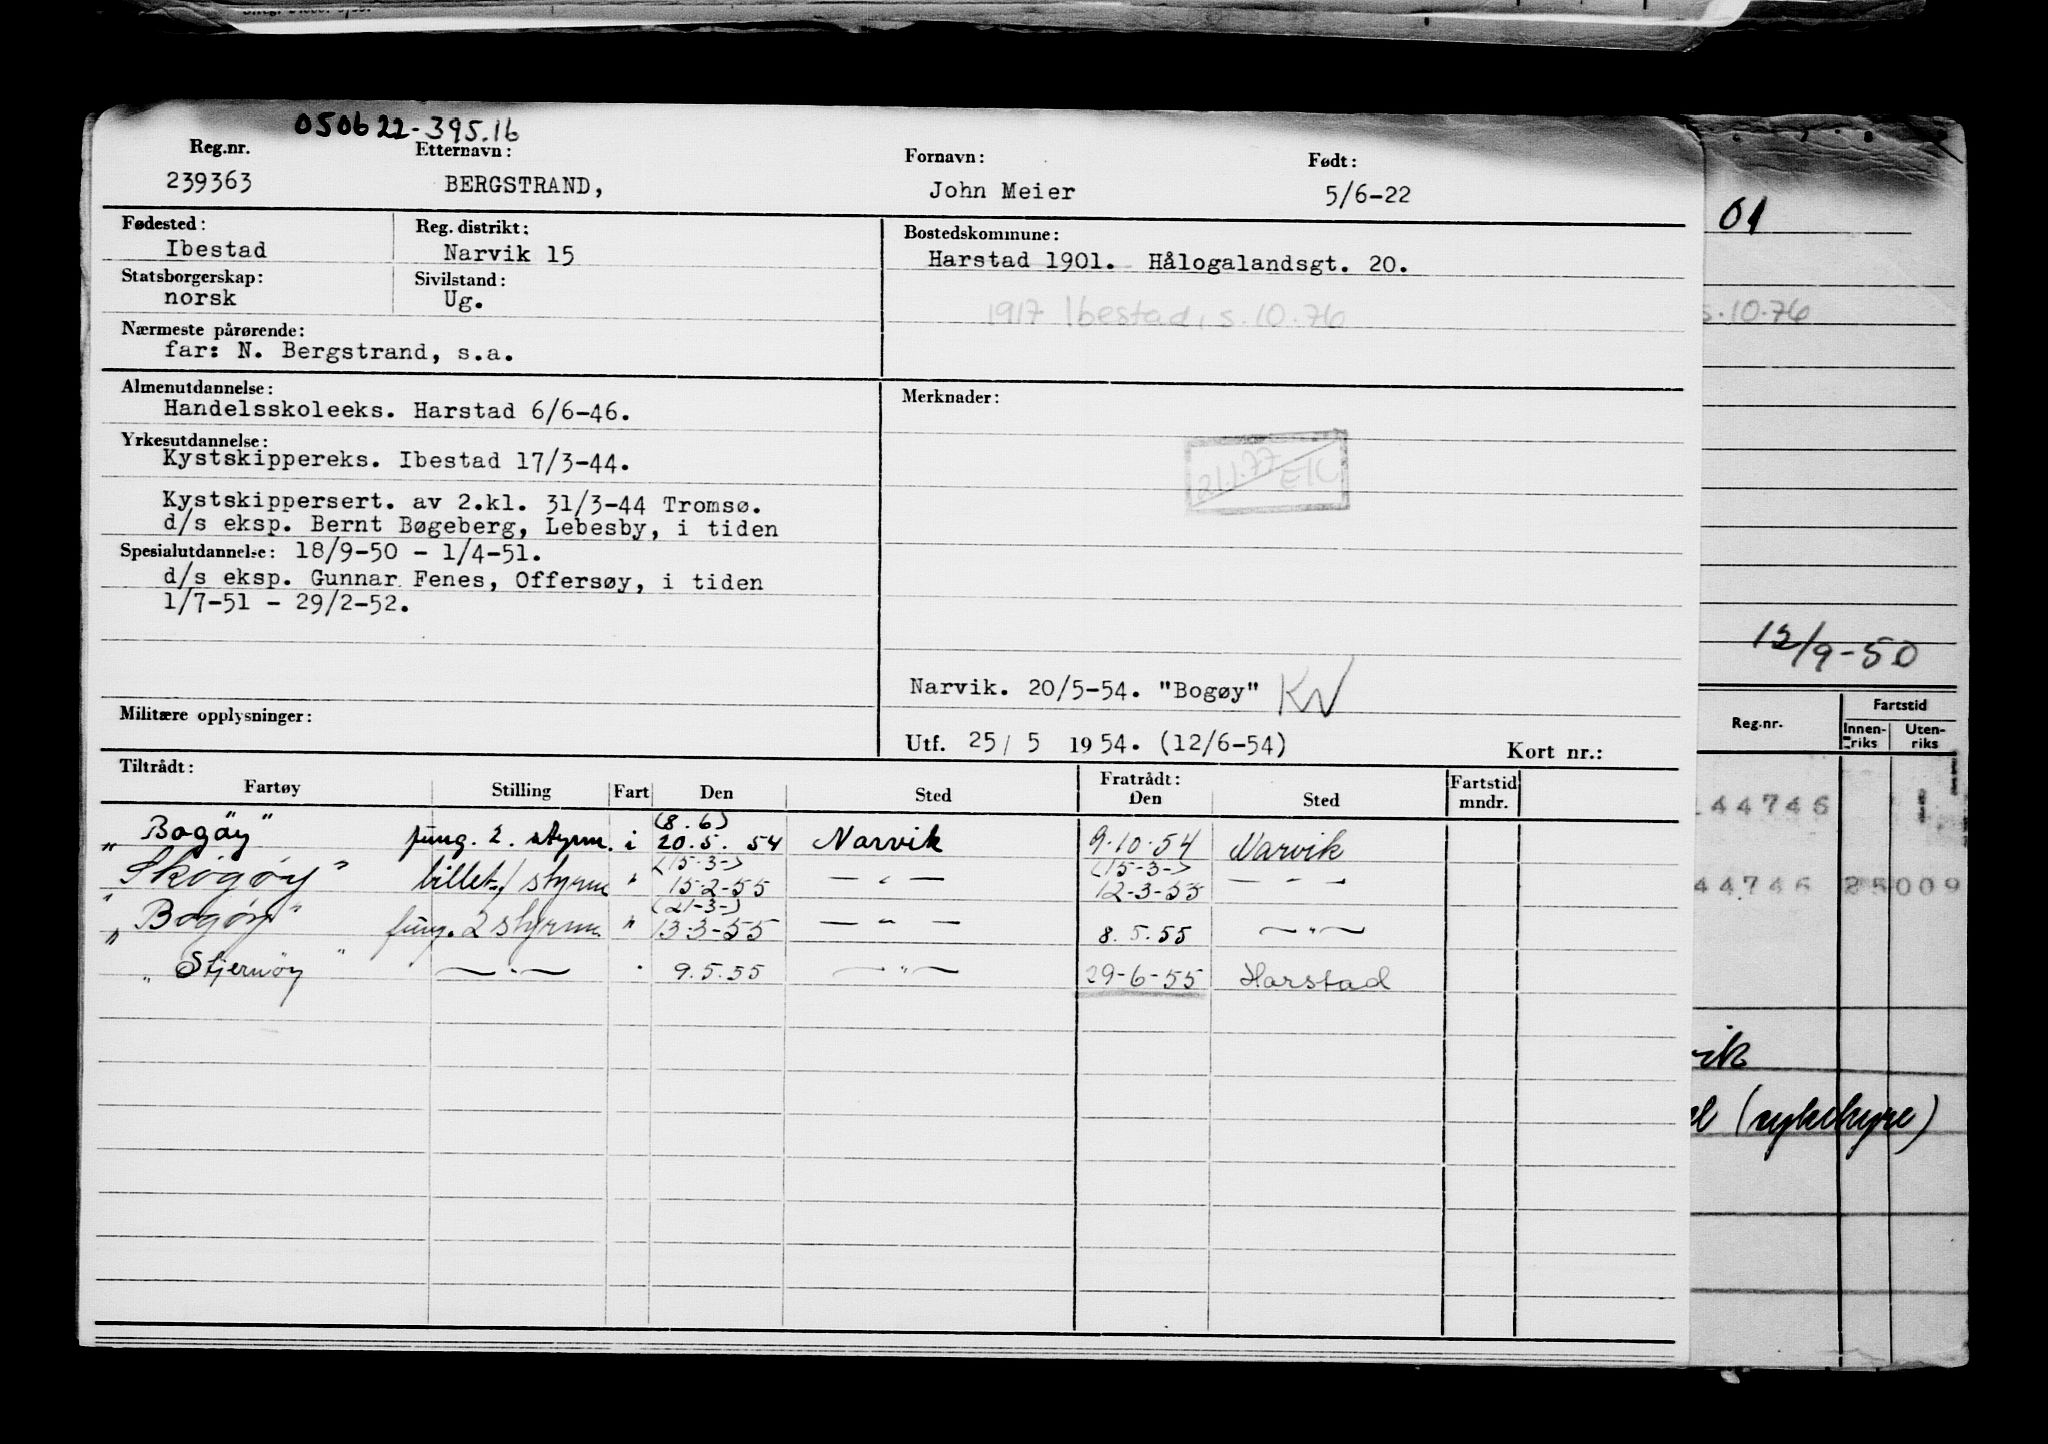 050622-395.16
Reg.nr. Etternavn: Fornavn: Født:
239363 BERGSTRAND, John Meier 5/6-22
01
Fødested: Reg. distrikt: Bostedskommune:
Ibestad Narvik 15 Harstad 1901. Hålogalandsgt. 20.
Statsborgerskap: Sivilstand:
norsk Ug.
1917 Ibestad, s. 10.76
s.10.76
Nærmeste pårørende:
far: N. Bergstrand, s.a.
Almenutdannelse: Merknader:
Handelsskoleeks. Harstad 6/6-46.
Yrkesutdannelse:
Kystskippereks. Ibestad 17/3-44.
21.1.77
Kystskippersert. av 2.kl. 31/3-44 Tromsø.
d/s eksp. Bernt Bøgeberg, Lebesby, i tiden
Spesialutdannelse: 18/9-50 - 1/4-51.
d/s eksp. Gunnar Fenes, Offersøy, i tiden
1/7-51 - 29/2-52.
/9-50
Narvik. 20/5-54. "Bogøy" KW
Militære opplysninger:
Utf. 25/ 5 1954. (12/6-54) Kort nr.:
Reg.nr. Fartstid
Innen-riks Uten-riks
Tiltrådt: Fratrådt:
Fartøy Stilling Fart Den Sted Den Sted Fartstid mndr.
(8.6)
"Bogøy" fung. 2. styrm. i 20.5. 54 Narvik 9.10.54 Narvik
(15-3-) (15-3-)
"Skogøy" billet. styrm " 15-2-55 — " — 12-3-55 — " —
(21-3-)
"Bogøy" fung. 2 styrm. " 13-3-55 — " — 8.5.55 — " —
"Stjernøy" — " — " 9.5.55 — " — 29-6-55 Harstad
144746
44746 25009
vik
(sykehyre)